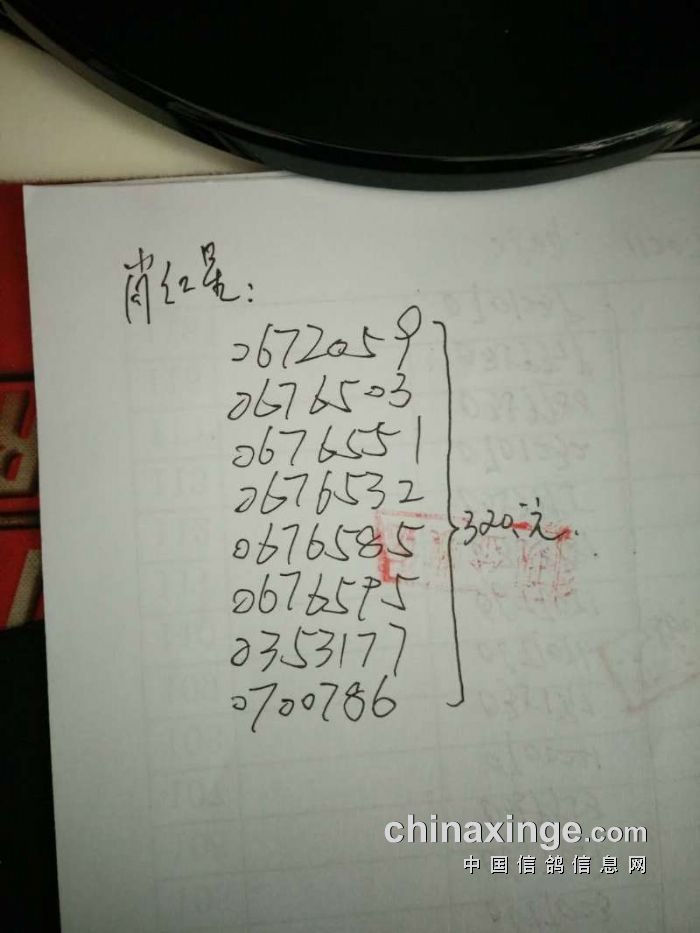 肖红星:
0672059
0676503
0676551
0676532
0676585
320元.
0676595
0353177
0700786
chinaxinge.com
中国信鸽信息网